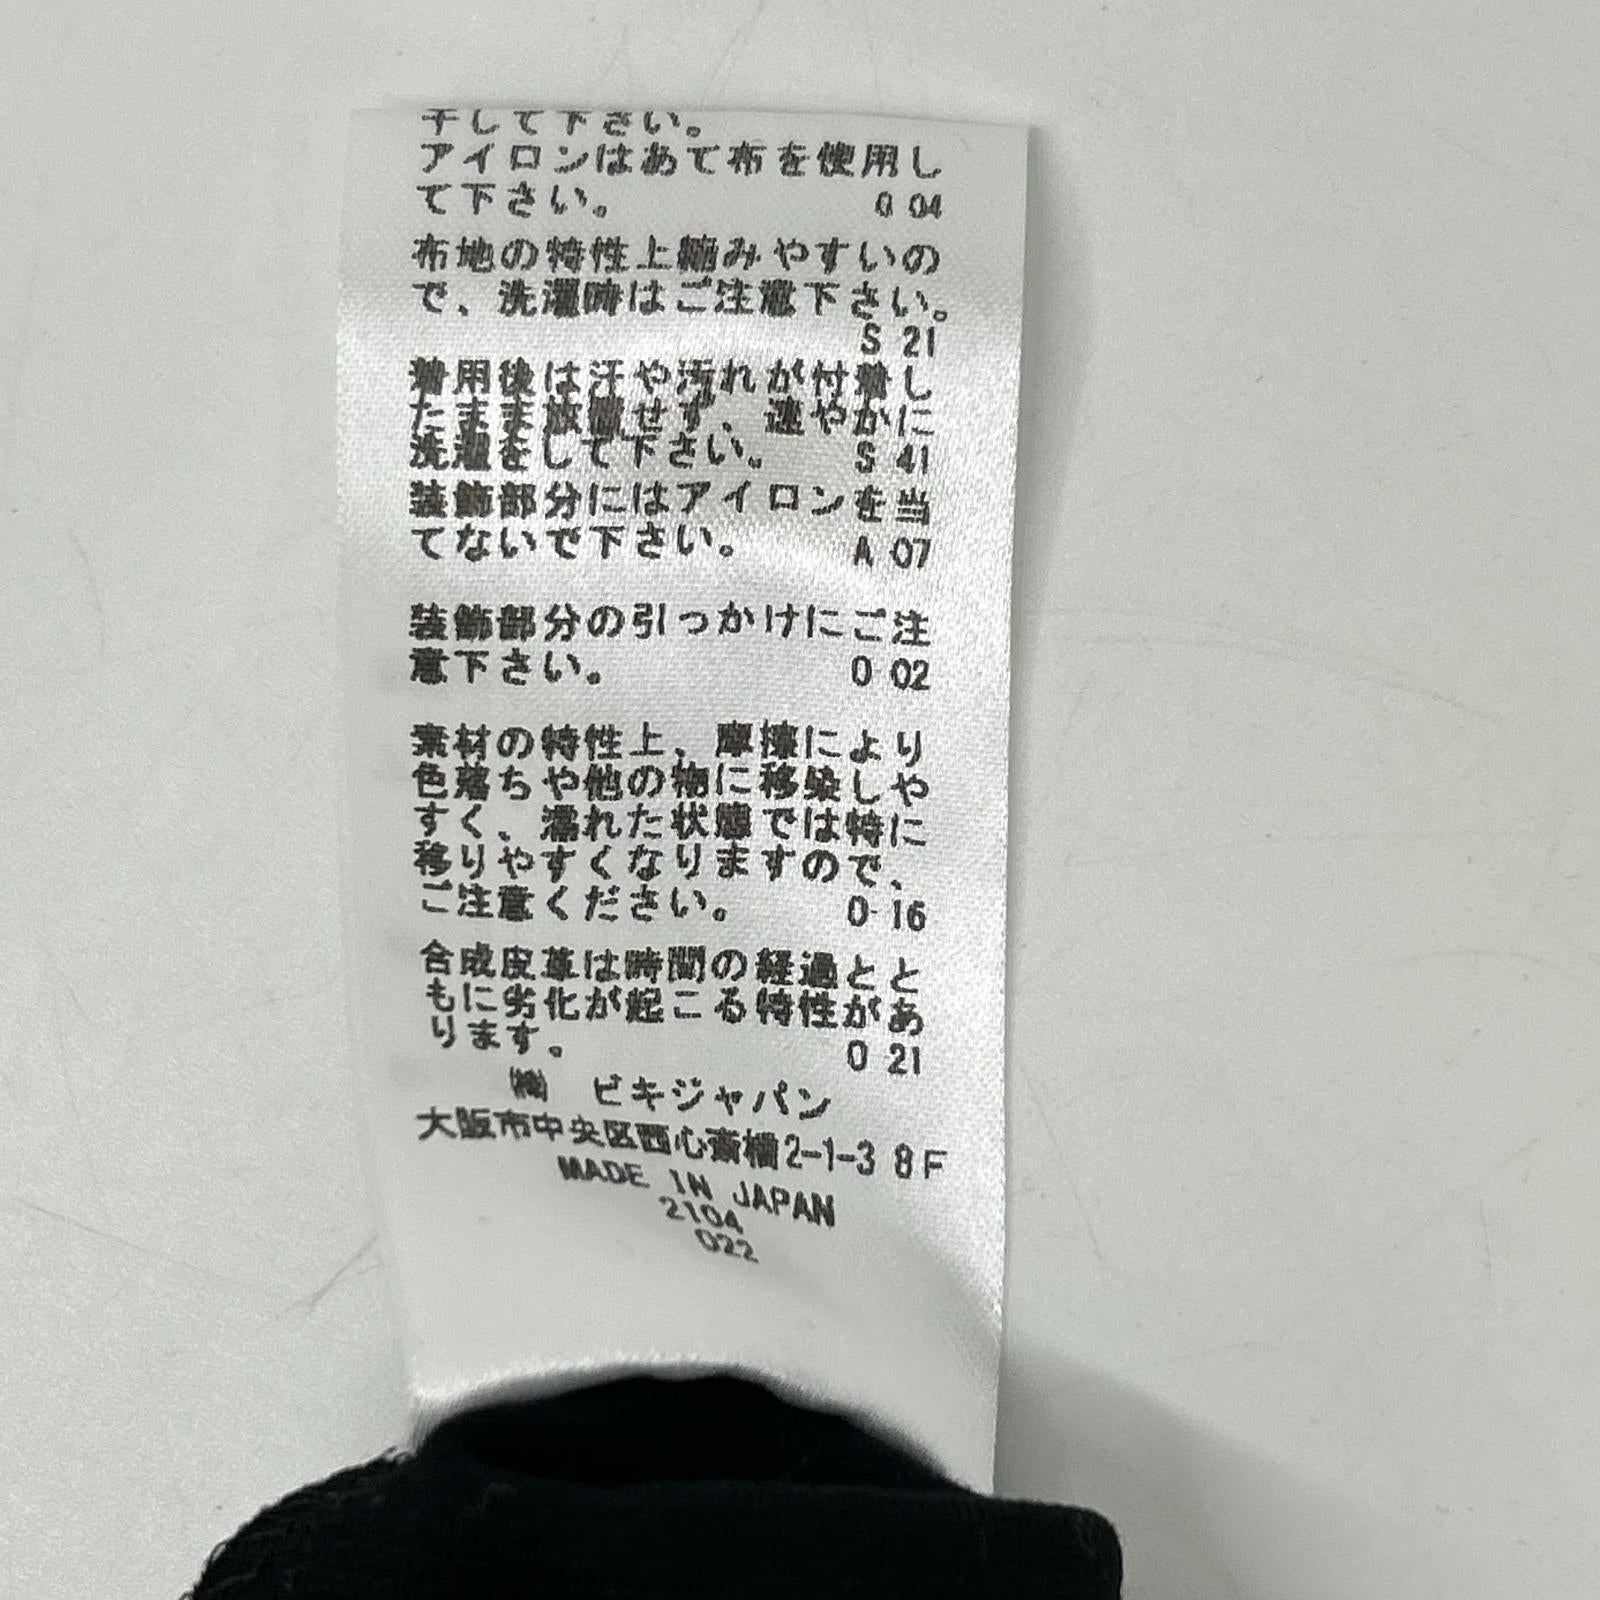 干して下さい。
アイロンはあて布を使用し
て下さい。 0 04
布地の特性上縮みやすいの
で、洗濯時はご注意下さい。
S 21
着用後は汗や汚れが付着し
たまま放置せず、速やかに
洗濯をして下さい。 S 41
装飾部分にはアイロンを当
てないで下さい。 A 07
装飾部分の引っかけにご注
意下さい。 0 02
素材の特性上、摩擦により
色落ちや他の物に移染しや
すく、濡れた状態では特に
移りやすくなりますので、
ご注意ください。 0 16
合成皮革は時間の経過とと
もに劣化が起こる特性があ
ります。 0 21
㈱ ビキジャパン
大阪市中央区西心斎橋2-1-3 8F
MADE IN JAPAN
2104
022